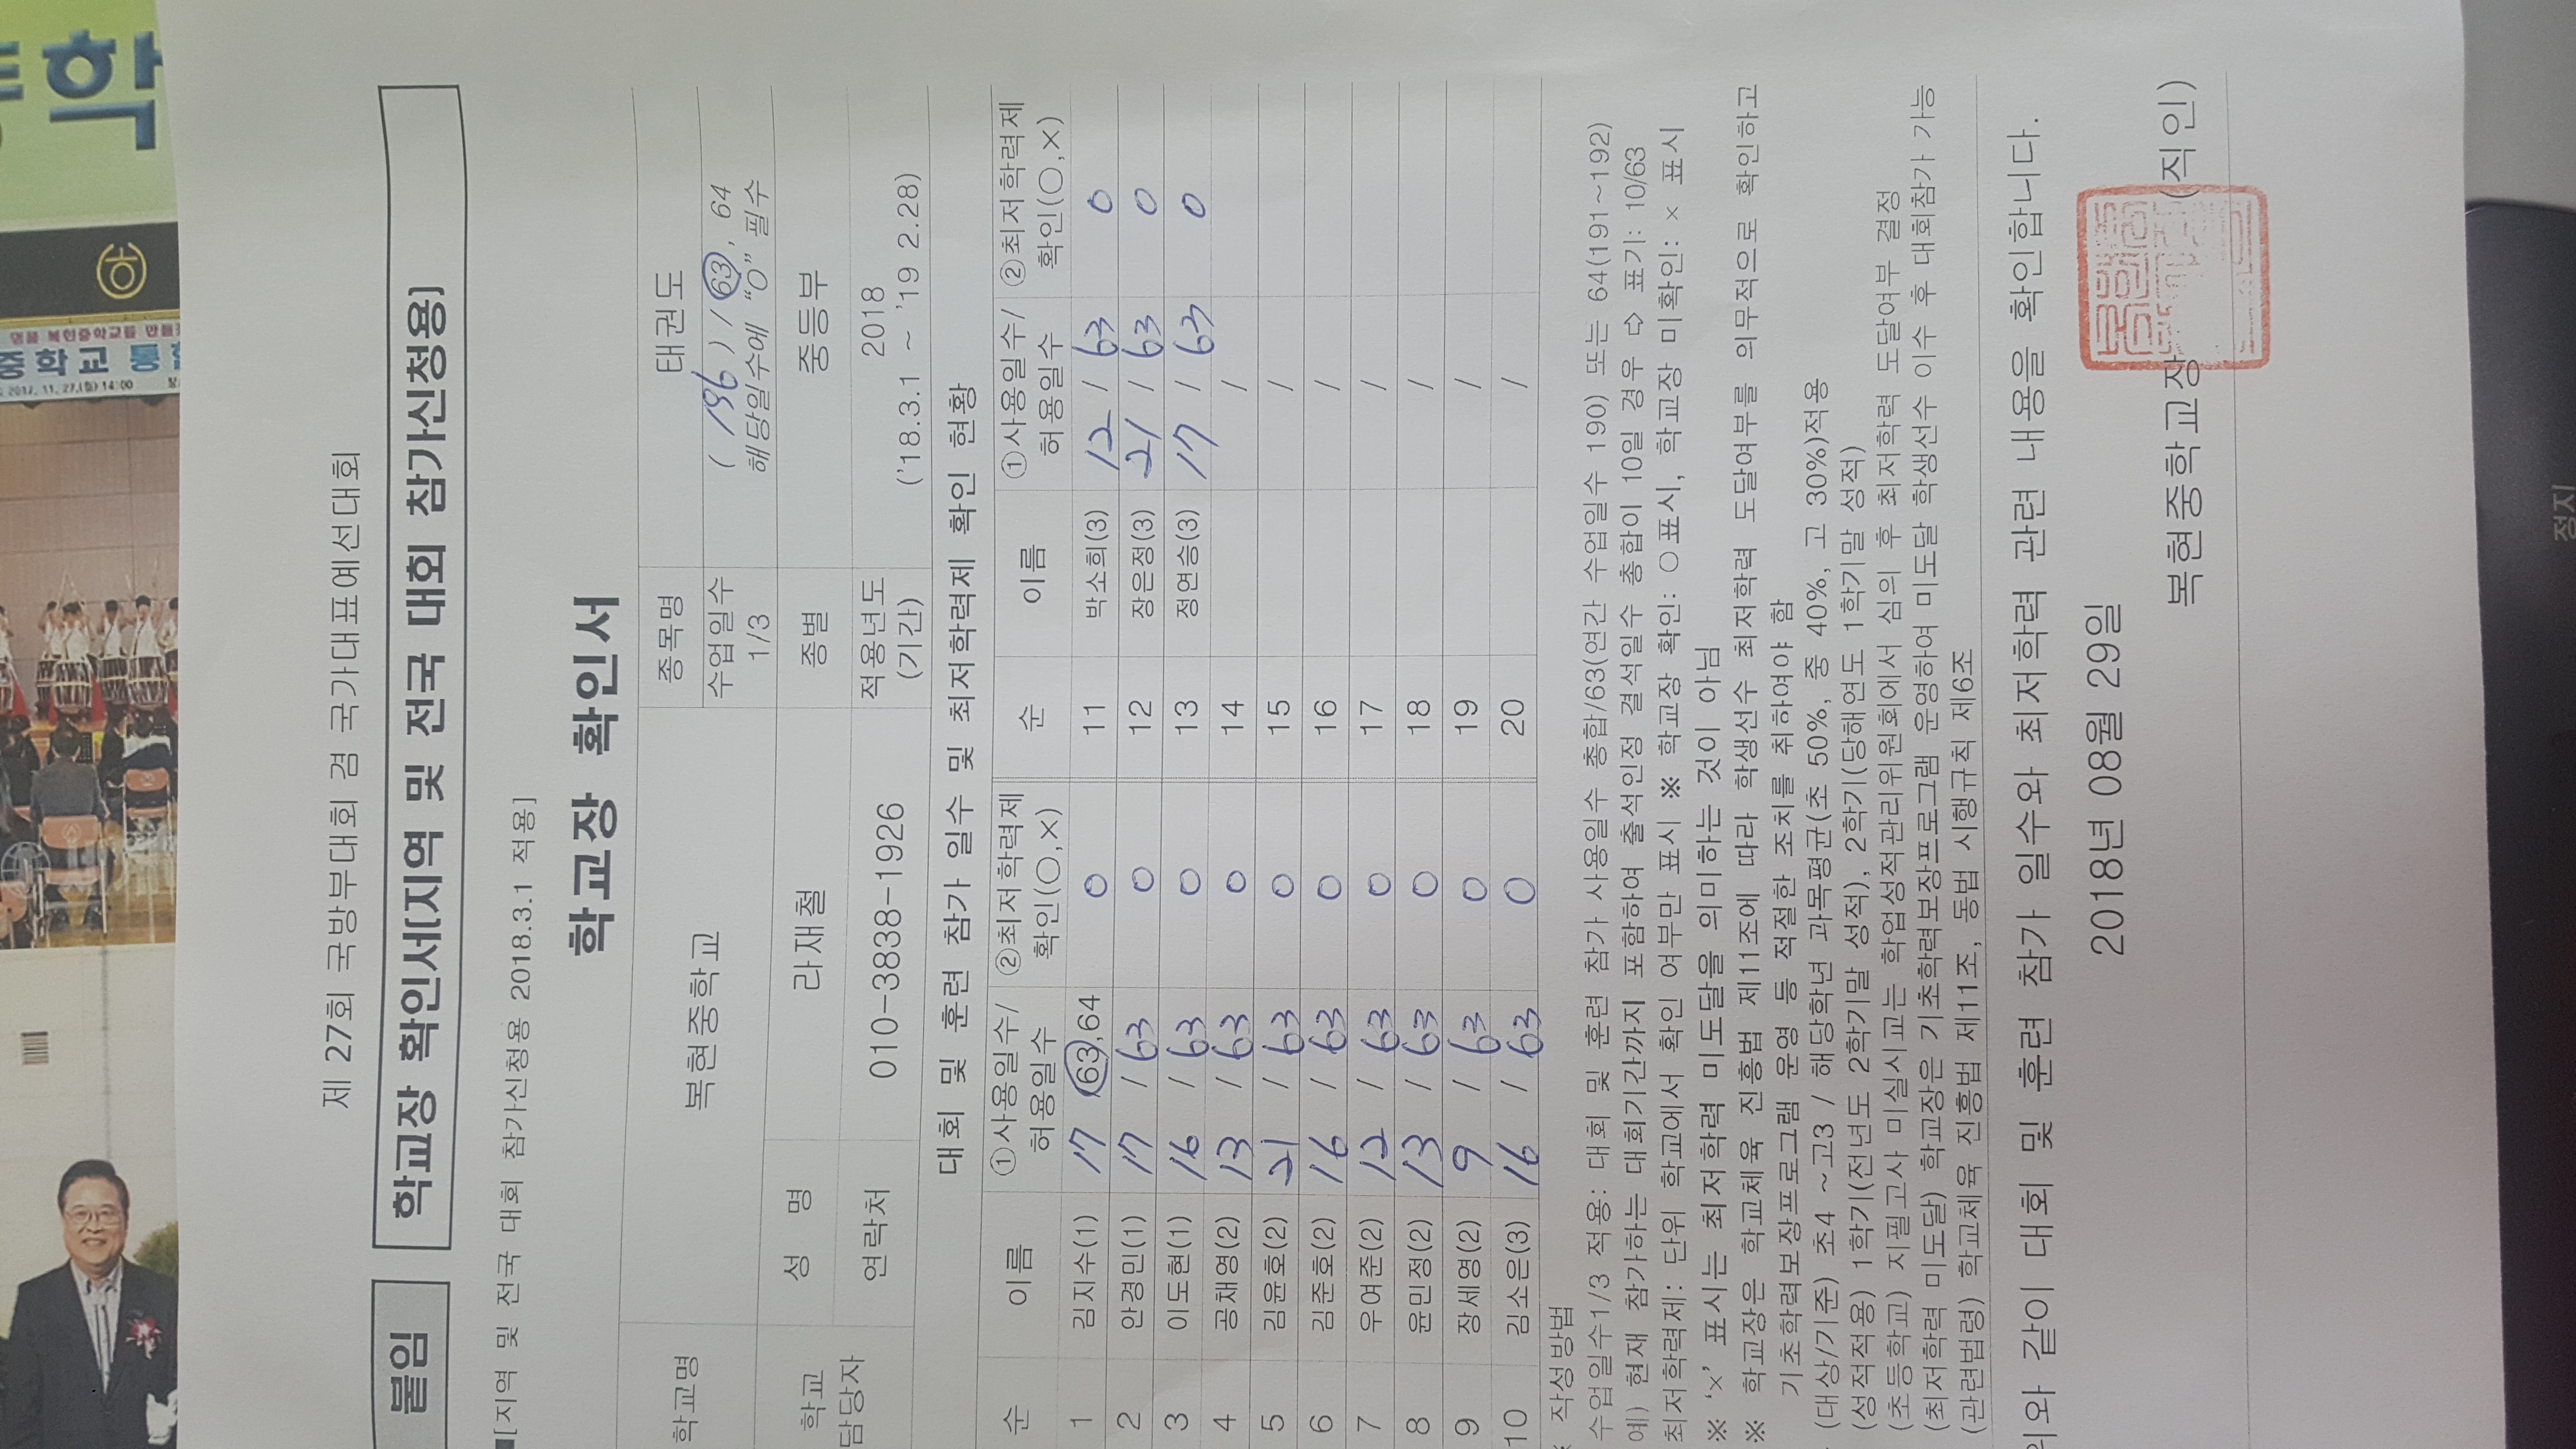 학
명품 복현중학교를 만들
중학교 통
2017. 11. 27.(월) 14:00
제 27회 국방부대회 겸 국가대표예선대회
붙임
학교장 확인서[지역 및 전국 대회 참가신청용]
■[지역 및 전국 대회 참가신청용 2018.3.1 적용]
학교장 확인서
학교명 복현중학교 종목명 태권도
수업일수 1/3 ( 196 ) / 63, 64
해당일수에 "O" 필수
학교 담당자 성 명 라재철 종별 중등부
연락처 010-3838-1926 적용년도 (기간) 2018
('18.3.1 ~ '19 2.28)
대회 및 훈련 참가 일수 및 최저학력제 확인 현황
순 이름 ①사용일수/허용일수 ②최저학력제 확인(○,×) 순 이름 ①사용일수/허용일수 ②최저학력제 확인(○,×)
1 김지수(1) 17 63,64 O 11 박소희(3) 12 / 63 O
2 안경민(1) 17 / 63 O 12 장은정(3) 21 / 63 O
3 이도현(1) 16 / 63 O 13 정연승(3) 17 / 63 O
4 공채영(2) 13 / 63 O 14 /
5 김윤호(2) 21 / 63 O 15 /
6 김준호(2) 16 / 63 O 16 /
7 우여준(2) 12 / 63 O 17 /
8 윤민정(2) 13 / 63 O 18 /
9 장세영(2) 9 / 63 O 19 /
10 김소은(3) 16 / 63 O 20 /
※ 작성방법
수업일수1/3 적용: 대회 및 훈련 참가 사용일수 총합/63(연간 수업일수 190) 또는 64(191~192)
예) 현재 참가하는 대회기간까지 포함하여 출석인정 결석일수 총합이 10일 경우 ⇨ 표기: 10/63
최저학력제: 단위 학교에서 확인 여부만 표시 ※ 학교장 확인: ○표시, 학교장 미확인: × 표시
※ '×' 표시는 최저학력 미도달을 의미하는 것이 아님
※ 학교장은 학교체육 진흥법 제11조에 따라 학생선수 최저학력 도달여부를 의무적으로 확인하고
기초학력보장프로그램 운영 등 적절한 조치를 취하여야 함
(대상/기준) 초4 ~고3 / 해당학년 과목평균(초 50%, 중 40%, 고 30%)적용
(성적적용) 1학기(전년도 2학기말 성적), 2학기(당해연도 1학기말 성적)
(초등학교) 지필고사 미실시교는 학업성적관리위원회에서 심의 후 최저학력 도달여부 결정
(최저학력 미도달) 학교장은 기초학력보장프로그램 운영하여 미도달 학생선수 이수 후 대회참가 가능
(관련법령) 학교체육 진흥법 제11조, 동법 시행규칙 제6조
위와 같이 대회 및 훈련 참가 일수와 최저학력 관련 내용을 확인합니다.
2018년 08월 29일
복현중학교장 (직인)
정지